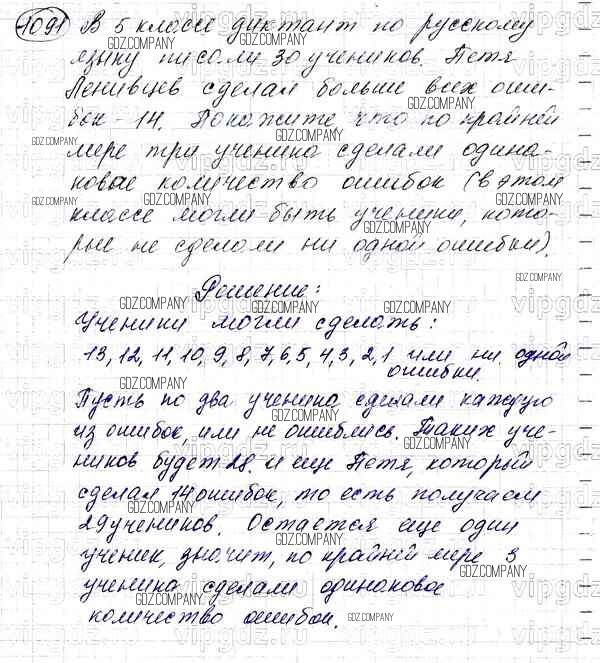 1091 В 5 классе диктант по русскому
языку писали 30 учеников. Петя
Ленивцев сделал больше всех оши-
бок - 14. Покажите что по крайней
мере три ученика сделали одина-
ковое количество ошибок (в этом
классе могли быть ученики, кото-
рые не сделали ни одной ошибки).
Решение:
Ученики могли сделать:
13, 12, 11, 10, 9, 8, 7, 6, 5, 4, 3, 2, 1 или ни одной
ошибки.
Пусть по два ученика сделали каждую
из ошибок, или не ошиблись. Таких уче-
ников будет 28. и еще Петя, который
сделал 14 ошибок, то есть получаем
29 учеников. Остается еще один
ученик, значит, по крайней мере 3
ученика сделали одинаковое
количество ошибок.